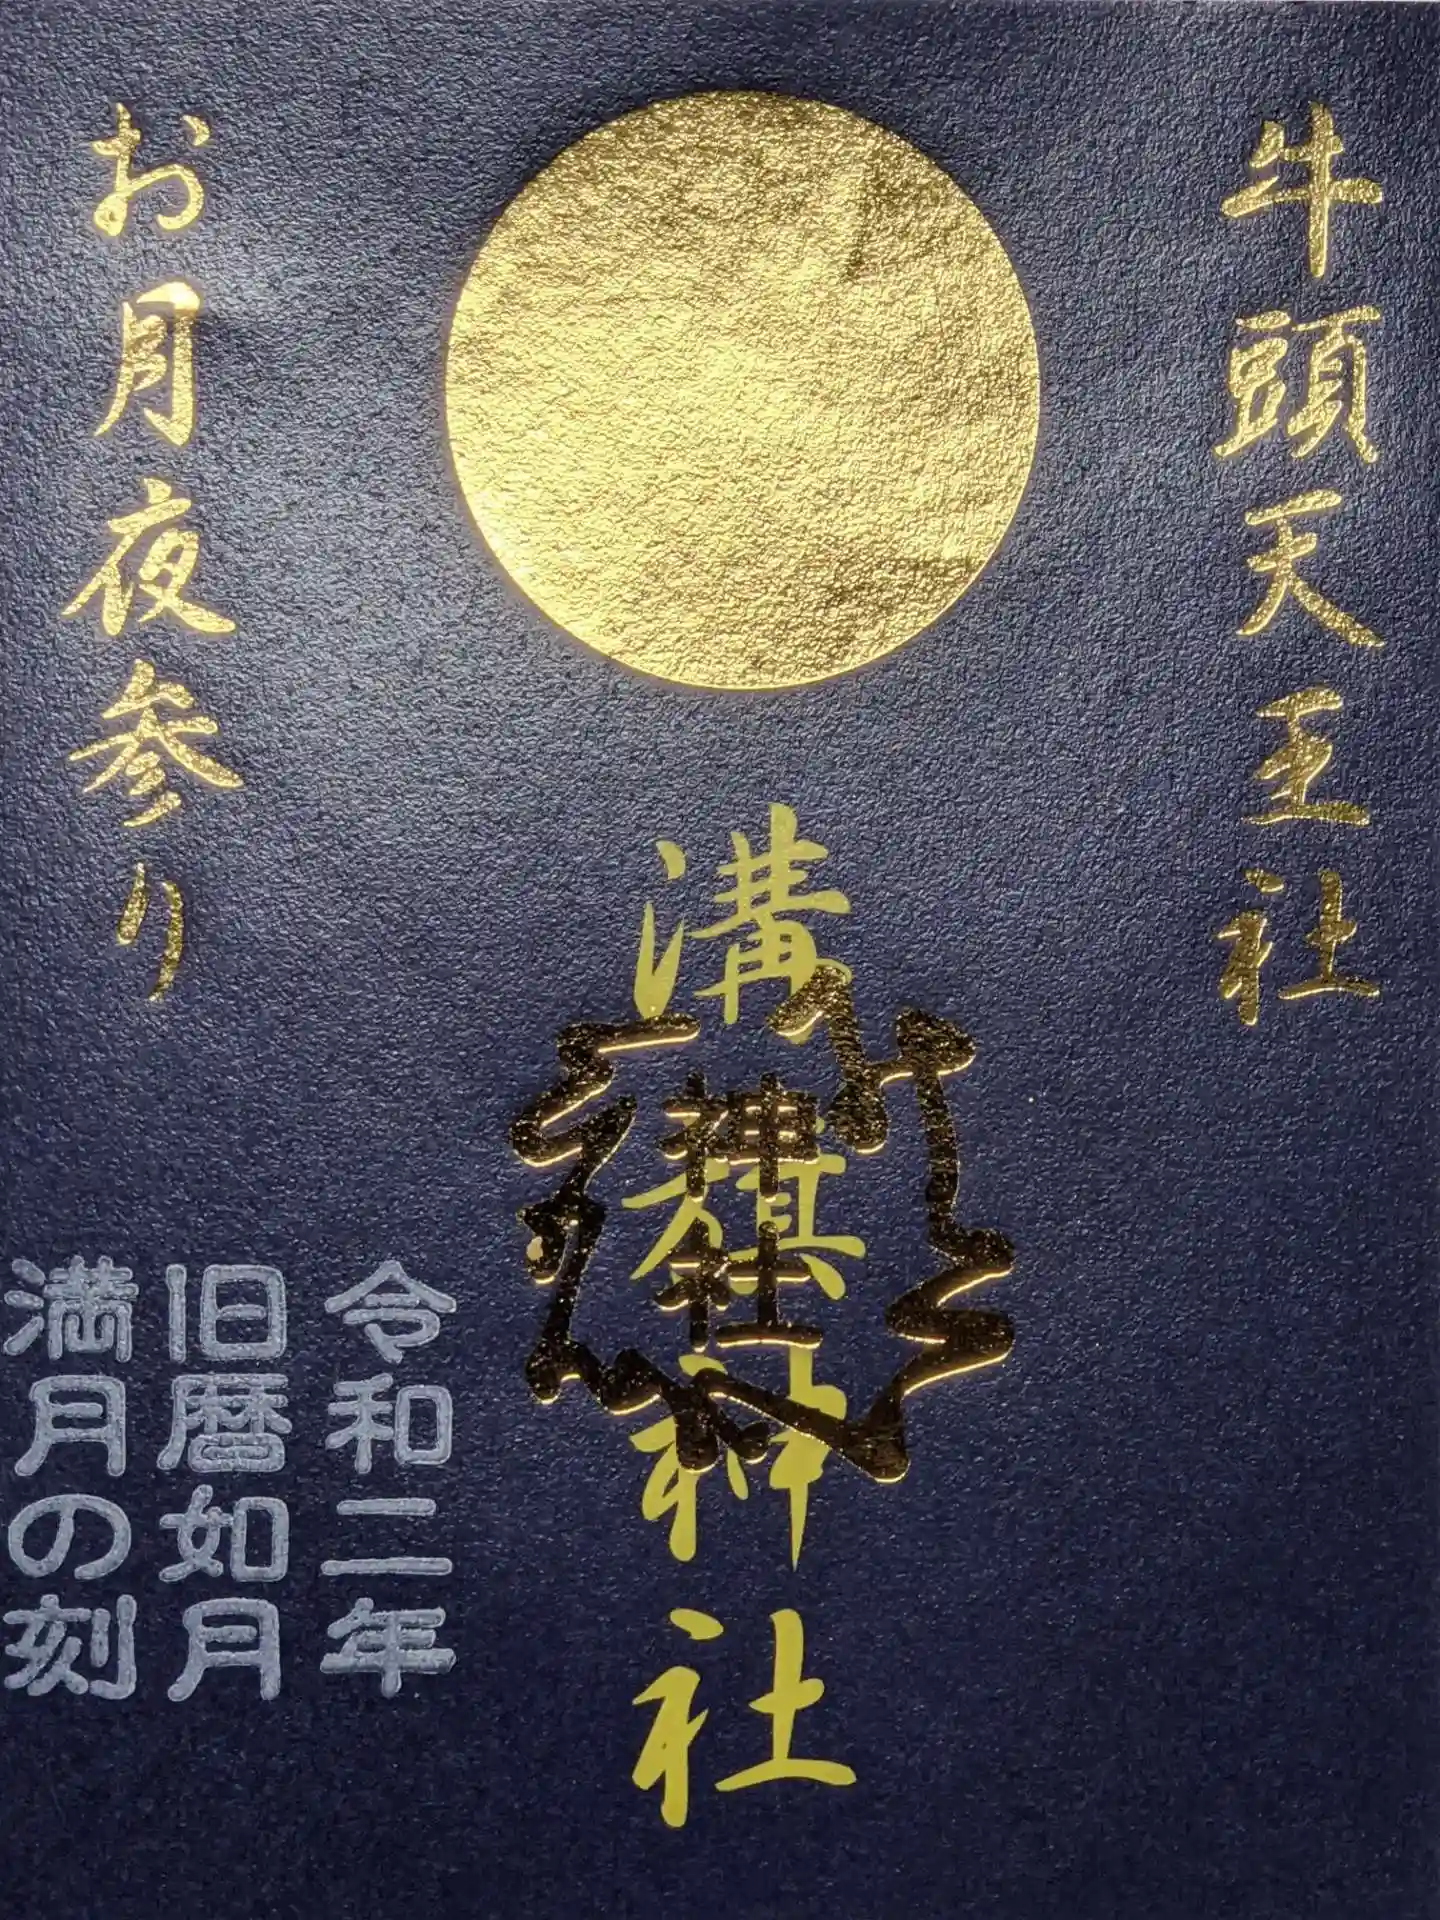 牛頭天王社
溝旗神社
神社
お月夜参り
令和二年
旧暦如月
満月の刻